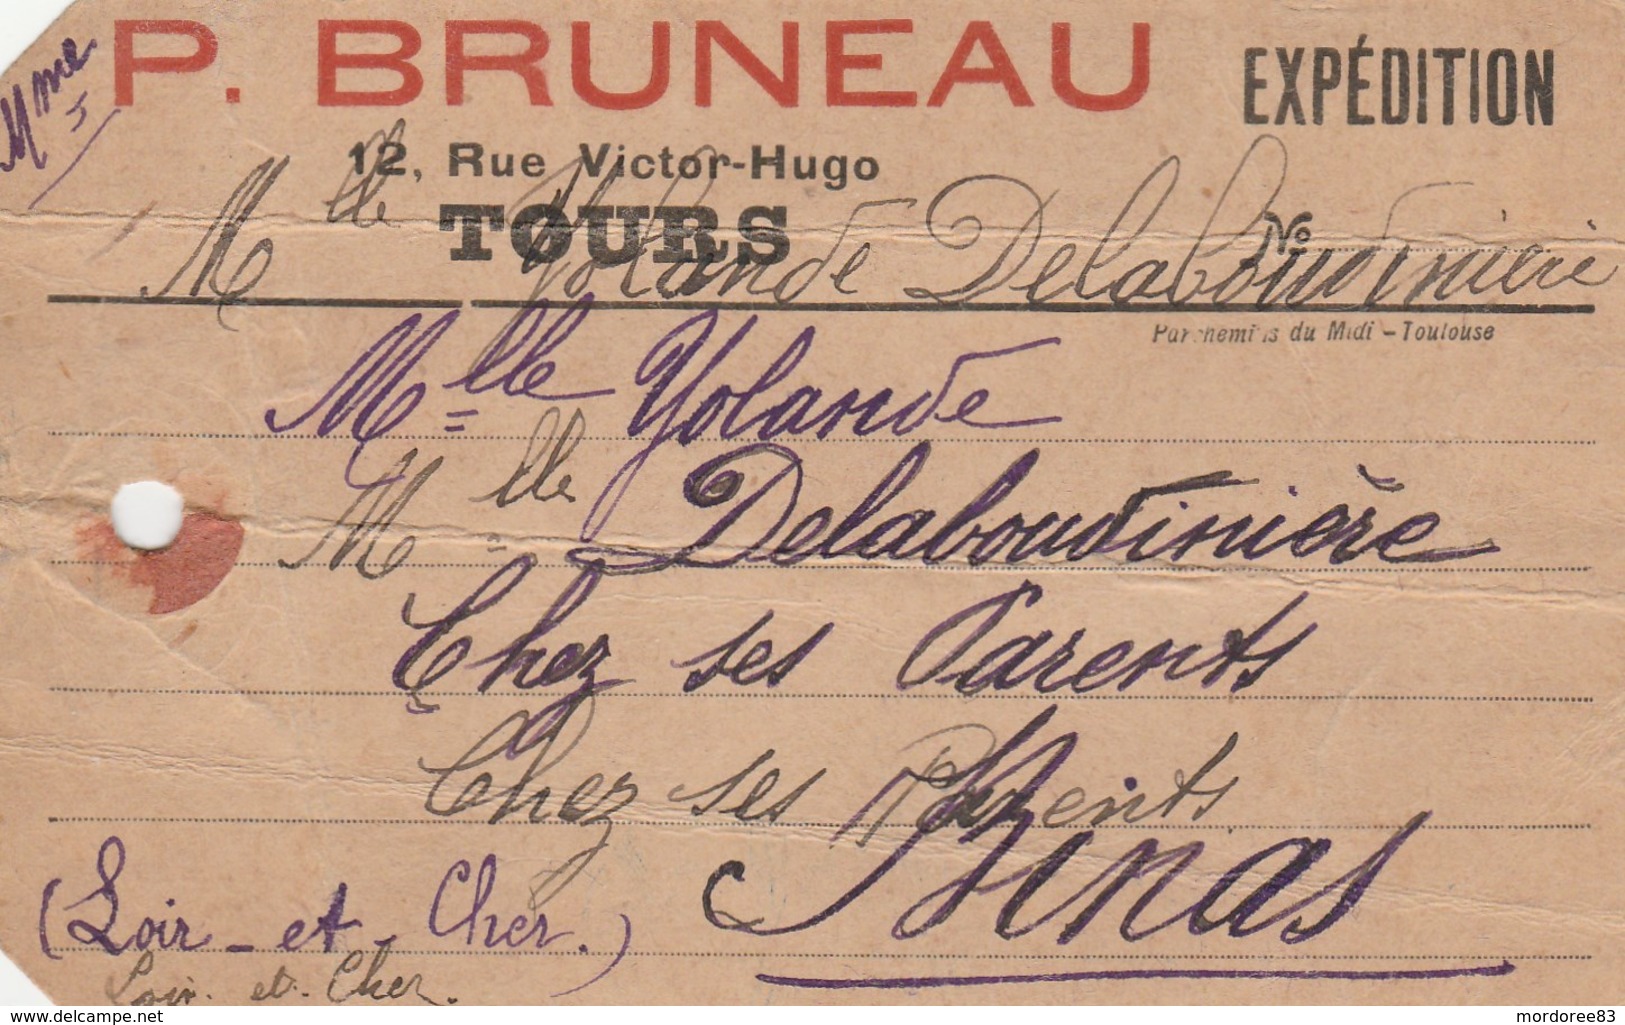 Mme
P. BRUNEAU
EXPÉDITION
12, Rue Victor-Hugo
TOURS
No
Mlle Yolande Delaboudinière
Parchemins du Midi - Toulouse
Mlle Yolande
Mlle Delaboudinière
Chez ses Parents
Chez ses Parents
Binas
(Loir-et-Cher.)
Loir-et-Cher.
www.delcampe.net
mordoree83